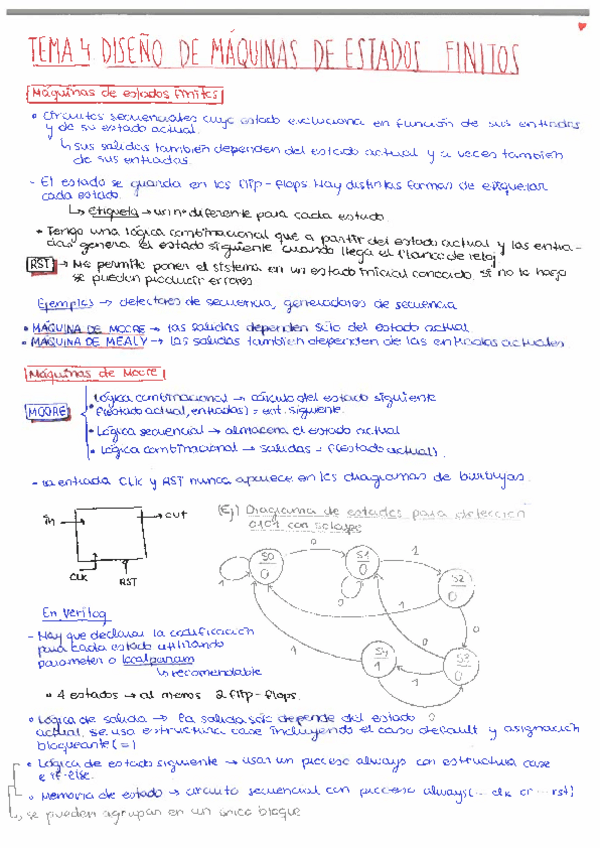 TEMA 4 DISEÑO DE MÁQUINAS DE ESTADOS FINITOS
Máquinas de estados finitos
• Circuitos secuenciales cuyo estado evoluciona en función de sus entradas
y de su estado actual.
↳ sus salidas también dependen del estado actual y a veces también
de sus entradas.
- El estado se guarda en los flip-flops. Hay distintas formas de etiquetar
cada estado.
↳ etiqueta → un nº diferente para cada estado.
• Tengo una lógica combinacional que a partir del estado actual y las entra-
das genera el estado siguiente cuando llega el flanco de reloj
RST → Me permite poner el sistema en un estado inicial conocido, si no lo hago
se pueden producir errores
Ejemplos → detectores de secuencia, generadores de secuencia
• MÁQUINA DE MOORE → las salidas dependen sólo del estado actual
• MÁQUINA DE MEALY → las salidas también dependen de las entradas actuales
Máquinas de Moore
MOORE
• Lógica combinacional → cálculo del estado siguiente
f(estado actual, entradas) = est. siguiente.
• Lógica secuencial → almacena el estado actual
• Lógica combinacional → salidas = f(estado actual).
- La entrada CLK y RST nunca aparece en los diagramas de burbujas.
in → → out
CLK RST
(Ej) Diagrama de estados para detección
0101 con solape
0
S0
0
S1
0
1
S2
0
1
0
1
0
0
S4
1
S3
0
1
0
En verilog
- Hay que declarar la codificación
para cada estado utilizando
parameter o localparam
↳ recomendable
• 4 estados → al menos 2 flip-flops.
• Lógica de salida → la salida sólo depende del estado
actual, se usa estructura case incluyendo el caso default y asignación
bloqueante (=)
• Lógica de estado siguiente → usar un proceso always con estructura case
e if-else.
• Memoria de estado → circuito secuencial con proceso always(... clk or ... rst)
↳ se pueden agrupar en un único bloque